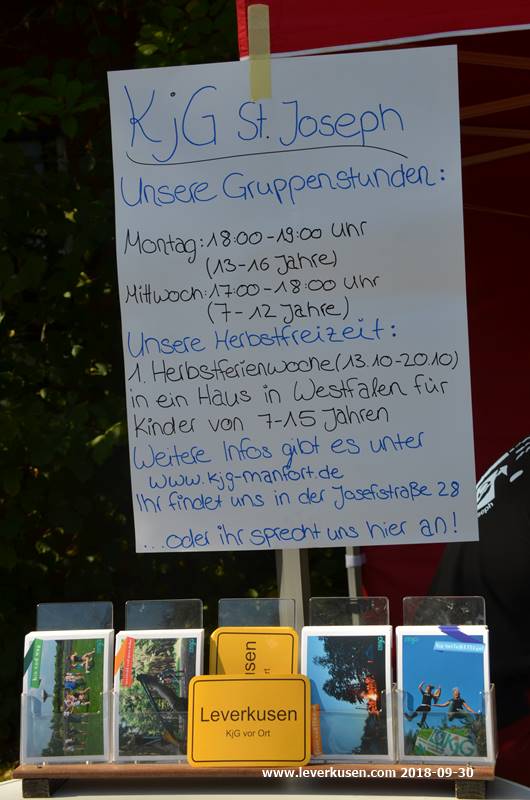 KjG St. Joseph
Unsere Gruppenstunden:
Montag: 18:00-19:00 Uhr
(13-16 Jahre)
Mittwoch: 17:00-18:00 Uhr
(7-12 Jahre)
Unsere Herbstfreizeit:
1. Herbstferienwoche (13.10-20.10)
in ein Haus in Westfalen für
Kinder von 7-15 Jahren
Weitere Infos gibt es unter
www.kjg-manfort.de
Ihr findet uns in der Josefistraße 28
...oder ihr sprecht uns hier an!
Leverkusen
KjG vor Ort
www.leverkusen.com 2018-09-30